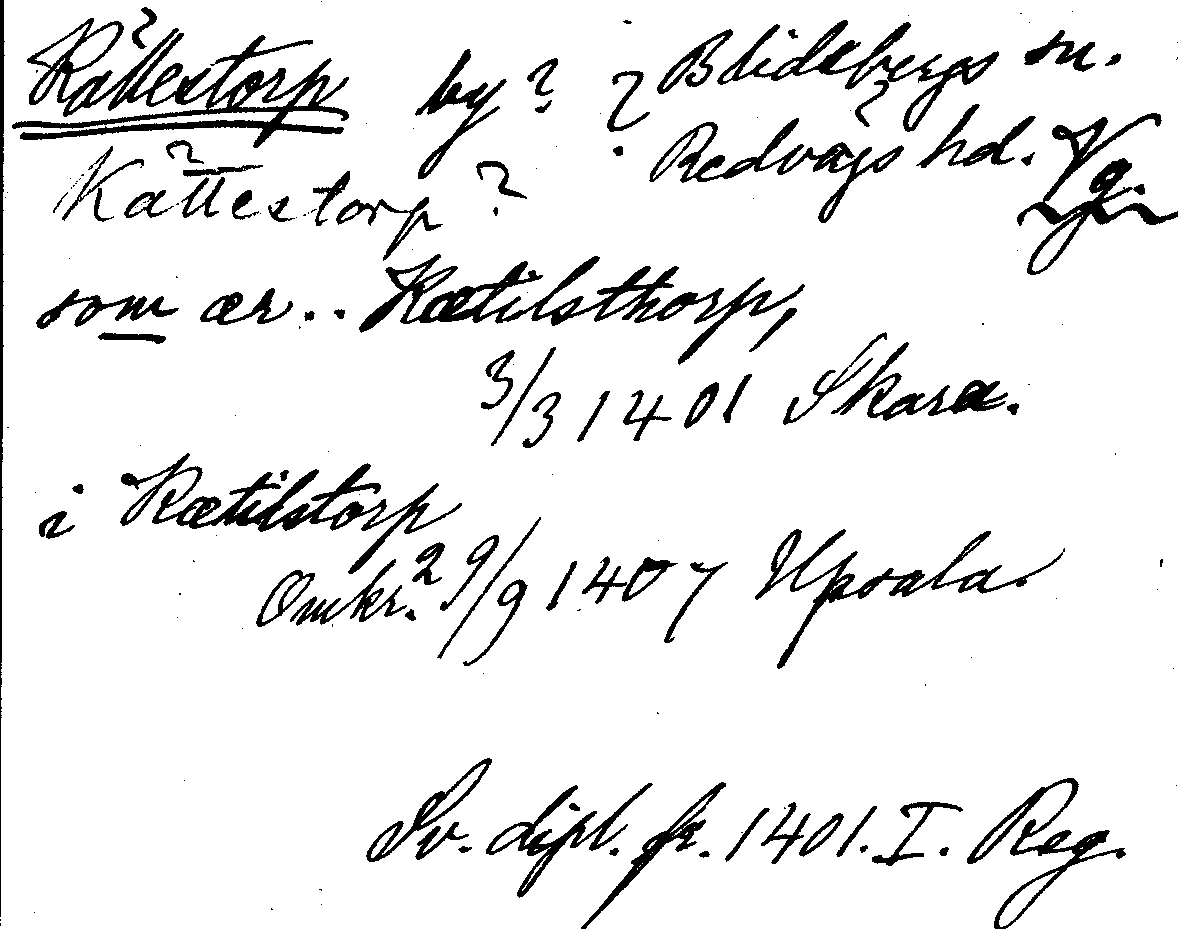 Kåttestorp by? ? Blidsbergs sn.
Kåttestorp? Redvägs hd. Vg.
som ær.. Kætilsthorp,
3/3 1401 Skara.
i Kætilstorp
Omkr. 29/9 1407 Upsala.
Sv. dipl. fr. 1401. I. Reg.